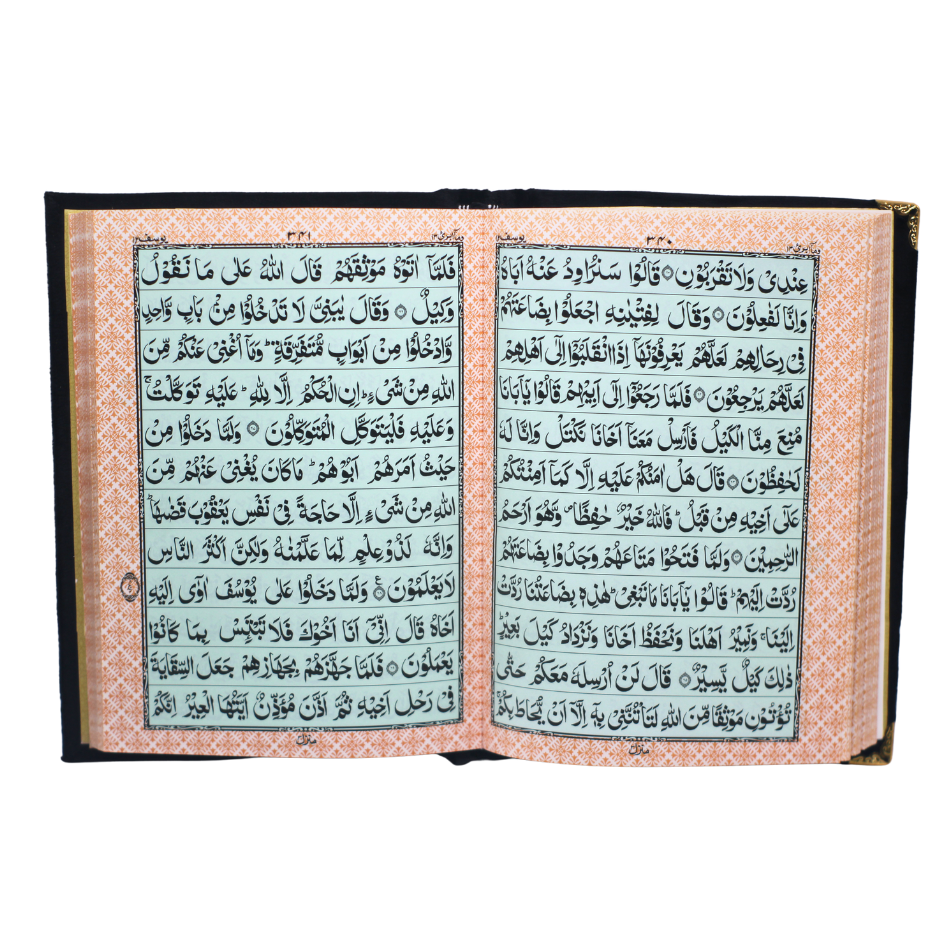 وما ابرئ ١٣
٣٤٠
يوسف
عِنْدِىْ وَلَا تَقْرَبُوْنِ ۝ قَالُوْا سَنُرَاوِدُ عَنْهُ اَبَاهُ
وَاِنَّا لَفٰعِلُوْنَ ۝ وَقَالَ لِفِتْيٰنِهِ اجْعَلُوْا بِضَاعَتَهُمْ
فِىْ رِحَالِهِمْ لَعَلَّهُمْ يَعْرِفُوْنَهَآ اِذَا انْقَلَبُوْٓا اِلٰٓى اَهْلِهِمْ
لَعَلَّهُمْ يَرْجِعُوْنَ ۝ فَلَمَّا رَجَعُوْٓا اِلٰٓى اَبِيْهِمْ قَالُوْا يٰٓاَبَانَا
مُنِعَ مِنَّا الْكَيْلُ فَاَرْسِلْ مَعَنَآ اَخَانَا نَكْتَلْ وَاِنَّا لَهٗ
لَحٰفِظُوْنَ ۝ قَالَ هَلْ اٰمَنُكُمْ عَلَيْهِ اِلَّا كَمَآ اَمِنْتُكُمْ
عَلٰٓى اَخِيْهِ مِنْ قَبْلُ ؕ فَاللّٰهُ خَيْرٌ حٰفِظًا ۪ وَّهُوَ اَرْحَمُ
الرّٰحِمِيْنَ ۝ وَلَمَّا فَتَحُوْا مَتَاعَهُمْ وَجَدُوْا بِضَاعَتَهُمْ
رُدَّتْ اِلَيْهِمْ ؕ قَالُوْا يٰٓاَبَانَا مَا نَبْغِىْ ؕ هٰذِهٖ بِضَاعَتُنَا رُدَّتْ
اِلَيْنَا ۚ وَنَمِيْرُ اَهْلَنَا وَنَحْفَظُ اَخَانَا وَنَزْدَادُ كَيْلَ بَعِيْرٍ ؕ
ذٰلِكَ كَيْلٌ يَّسِيْرٌ ۝ قَالَ لَنْ اُرْسِلَهٗ مَعَكُمْ حَتّٰى
تُؤْتُوْنِ مَوْثِقًا مِّنَ اللّٰهِ لَتَاْتُنَّنِىْ بِهٖٓ اِلَّآ اَنْ يُّحَاطَ بِكُمْ ۚ
منزل
وما ابرئ ١٣
٣٤١
يوسف
فَلَمَّآ اٰتَوْهُ مَوْثِقَهُمْ قَالَ اللّٰهُ عَلٰى مَا نَقُوْلُ
وَكِيْلٌ ۝ وَقَالَ يٰبَنِىَّ لَا تَدْخُلُوْا مِنْۢ بَابٍ وَّاحِدٍ
وَّادْخُلُوْا مِنْ اَبْوَابٍ مُّتَفَرِّقَةٍ ؕ وَمَآ اُغْنِىْ عَنْكُمْ مِّنَ
اللّٰهِ مِنْ شَىْءٍ ؕ اِنِ الْحُكْمُ اِلَّا لِلّٰهِ ؕ عَلَيْهِ تَوَكَّلْتُ ۚ
وَعَلَيْهِ فَلْيَتَوَكَّلِ الْمُتَوَكِّلُوْنَ ۝ وَلَمَّا دَخَلُوْا مِنْ
حَيْثُ اَمَرَهُمْ اَبُوْهُمْ ؕ مَا كَانَ يُغْنِىْ عَنْهُمْ مِّنَ
اللّٰهِ مِنْ شَىْءٍ اِلَّا حَاجَةً فِىْ نَفْسِ يَعْقُوْبَ قَضٰىهَا ؕ
وَاِنَّهٗ لَذُوْ عِلْمٍ لِّمَا عَلَّمْنٰهُ وَلٰكِنَّ اَكْثَرَ النَّاسِ
لَا يَعْلَمُوْنَ ۝ ع وَلَمَّا دَخَلُوْا عَلٰى يُوْسُفَ اٰوٰٓى اِلَيْهِ
اَخَاهُ قَالَ اِنِّىْٓ اَنَا اَخُوْكَ فَلَا تَبْتَئِسْ بِمَا كَانُوْا
يَعْمَلُوْنَ ۝ فَلَمَّا جَهَّزَهُمْ بِجَهَازِهِمْ جَعَلَ السِّقَايَةَ
فِىْ رَحْلِ اَخِيْهِ ثُمَّ اَذَّنَ مُؤَذِّنٌ اَيَّتُهَا الْعِيْرُ اِنَّكُمْ
منزل